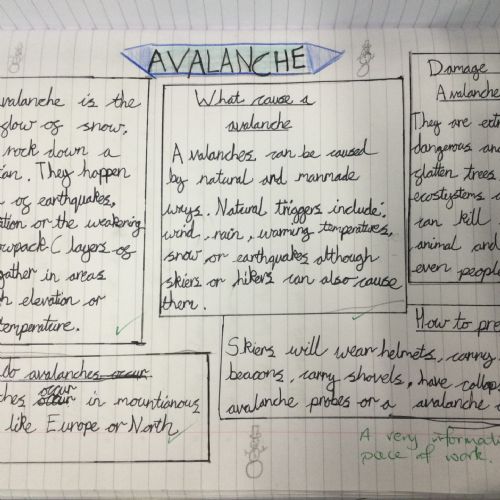 AVALANCHE
valanche is the
flow of snow,
rock down a
They happen
of earthquakes,
or the weakening
(layers of
gather in areas
elevation or
temperature.
What cause a
avalanche
Avalanches can be caused
by natural and manmade
ways. Natural triggers include:
wind, rain, warming temperatures,
snow or earthquakes although
skiers or hikers can also cause
them.
Damage
Avalanche
They are
dangerous and
flatten trees
ecostystems
can kill
animal and
even people
do avalanches occur
occur in mountianous
like Europe or North
How to
Skiers will wear helmets, carry
beacons, carry shovels, have
avalanche probes or a avalanche
A very
peace of work.